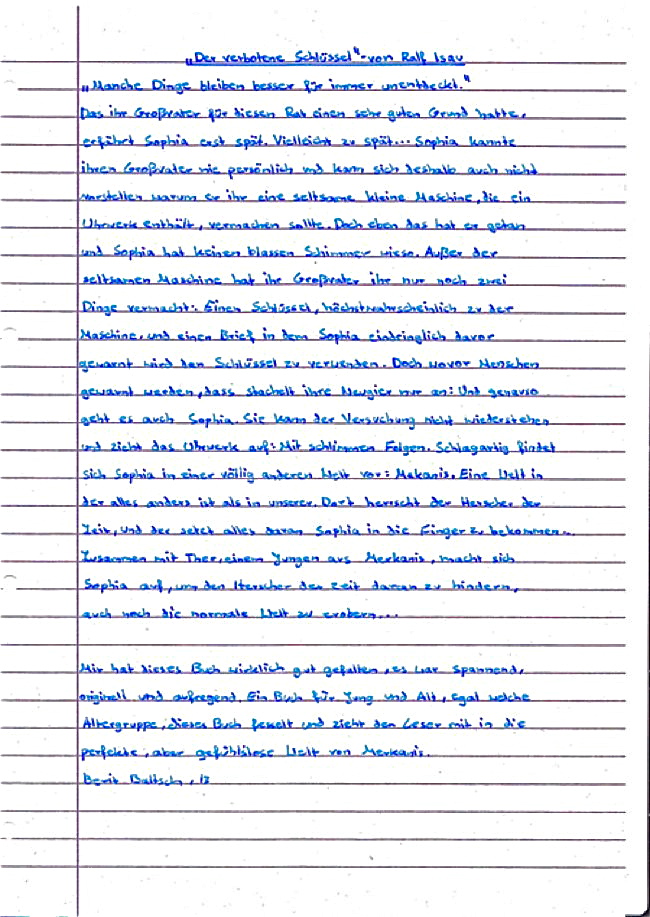 „Der verbotene Schlüssel"-von Ralf Isau
„Manche Dinge bleiben besser für immer unentdeckt."
Das ihr Großvater für diesen Rat einen sehr guten Grund hatte,
erfährt Sophia erst spät. Vielleicht zu spät... Sophia kannte
ihren Großvater nie persönlich und kann sich deshalb auch nicht
vorstellen warum er ihr eine seltsame kleine Maschine, die ein
Uhrwerk enthält, vermachen sollte. Doch eben das hat er getan
und Sophia hat keinen blassen Schimmer wieso. Außer der
seltsamen Maschine hat ihr Großvater ihr nur noch zwei
Dinge vermacht: Einen Schlüssel, höchstwahrscheinlich zu der
Maschine, und einen Brief in dem Sophia eindringlich davor
gewarnt wird den Schlüssel zu verwenden. Doch wovor Menschen
gewarnt werden, dass stachelt ihre Neugier nur an: Und genauso
geht es auch Sophia. Sie kann der Versuchung nicht wiederstehen
und zieht das Uhrwerk auf: Mit schlimmen Folgen. Schlagartig findet
sich Sophia in einer völlig anderen Welt vor: Mekanis. Eine Welt in
der alles anders ist als in unserer. Dort herrscht der Herscher der
Zeit, und der setzt alles daran Sophia in die Finger zu bekommen...
Zusammen mit Theo, einem Jungen aus Merkanis, macht sich
Sophia auf, um den Herscher der Zeit daran zu hindern,
auch noch die normale Welt zu erobern...
Mir hat dieses Buch wirklich gut gefallen, es war spannend,
originell und aufregend. Ein Buch für Jung und Alt, egal welche
Altergruppe, dieses Buch fesselt und zieht den Leser mit in die
perfekte, aber gefühllose Welt von Merkanis.
Berit 13